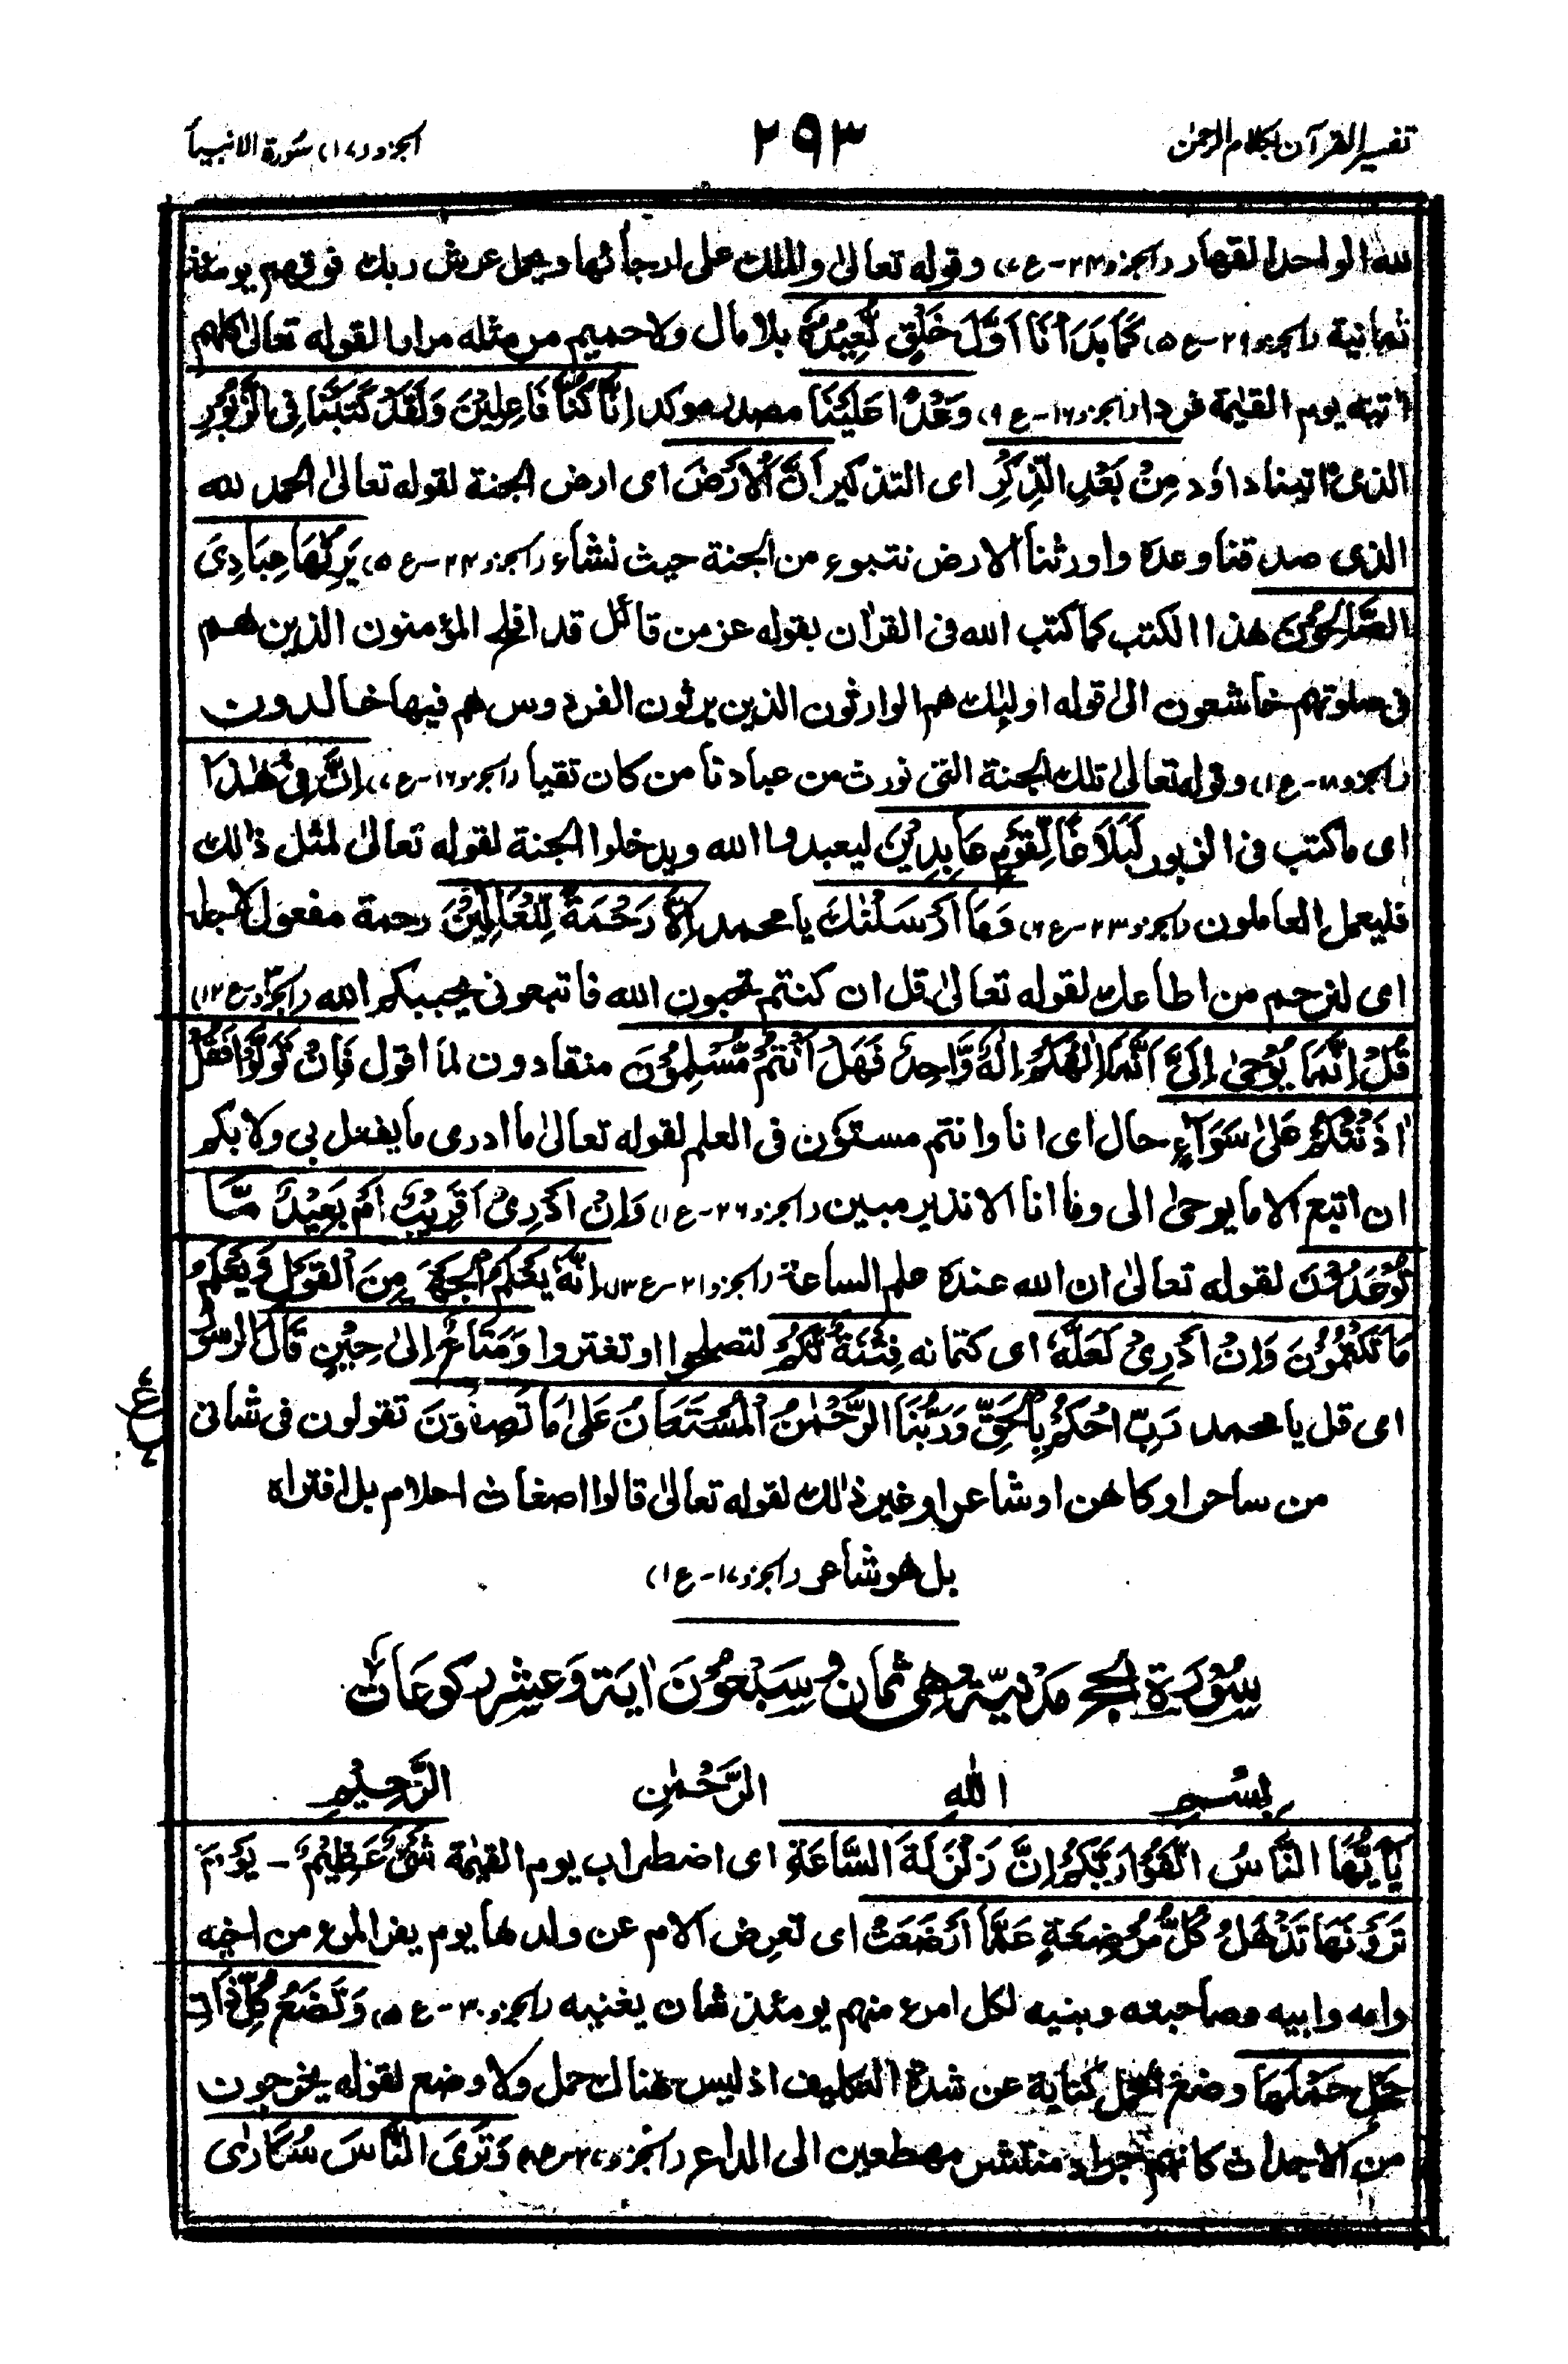 تفسير القرآن بكلام الرحمن
٢٩٣
الجزو (١٧) سورة الانبيآ
لله الواحد القهار (الجزو ٢٤-ع ٧) وقوله تعالىٰ والملك على ارجائها ويحمل عرش ربك فوقهم يومئذ
ثمانية (الجزو ٢٩-ع ٥) كَمَا بَدَأْنَا اَوَّلَ خَلْقٍ نُّعِيْدُهٗ بلا مال ولا حميم من مثله مرارا لقوله تعالىٰ كلهم
اٰتيه يوم القيٰمة فردا (الجزو ١٦-ع ٩) وَعْدًا عَلَيْنَا مصدر موكد اِنَّا كُنَّا فَاعِلِيْنَ وَلَقَدْ كَتَبْنَا فِى الزَّبُوْرِ
الذى اٰتينا داوٗد مِنْ بَعْدِ الذِّكْرِ اى التذكير اَنَّ الْاَرْضَ اى ارض الجنة لقوله تعالىٰ الحمد لله
الذى صدقنا وعدهٗ واورثنا الارض نتبوء من الجنة حيث نشاء (الجزو ٢٤-ع ٥) يَرِثُهَا عِبَادِىَ
الصَّالِحُوْنَ هٰذا الكتب كما كتب الله فى القراٰن بقوله عز من قائل قد افلح المؤمنون الذين هم
فى صلوتهم خاشعون الىٰ قوله اولٰئك هم الوارثون الذين يرثون الفردوس هم فيها خالدون
(الجزو ١٨-ع ١) وقوله تعالىٰ تلك الجنة التى نورث من عبادنا من كان تقيا (الجزو ١٦-ع ٧) اِنَّ فِىْ هٰذَا
اى ما كتب فى الزبور لَبَلَاغًا لِّقَوْمٍ عَابِدِيْنَ ليعبدوا الله ويدخلوا الجنة لقوله تعالىٰ لمثل ذالك
فليعمل العاملون (الجزو ٢٣-ع ٦) وَمَا اَرْسَلْنٰكَ يا محمد اِلَّا رَحْمَةً لِّلْعَالَمِيْنَ رحمة مفعول لاجله
اى لنرحم من اطاعك لقوله تعالىٰ قل ان كنتم تحبون الله فاتبعونى يحببكم الله (الجزو ٣-ع ١٢)
قُلْ اِنَّمَا يُوْحٰى اِلَىَّ اَنَّمَا اِلٰهُكُمْ اِلٰهٌ وَّاحِدٌ فَهَلْ اَنْتُمْ مُّسْلِمُوْنَ منقادون لما اقول فَاِنْ تَوَلَّوْا فَقُلْ
اٰذَنْتُكُمْ عَلٰى سَوَآءٍ حال اى انا وانتم مستوٗن فى العلم لقوله تعالىٰ ما ادرى ما يفعل بى ولا بكم
ان اتبع الا ما يوحىٰ الى وما انا الا نذير مبين (الجزو ٢٦-ع ١) وَاِنْ اَدْرِىْ اَقَرِيْبٌ اَمْ بَعِيْدٌ مَّا
تُوْعَدُوْنَ لقوله تعالىٰ ان الله عنده علم الساعة (الجزو ٢١-ع ١٣) اِنَّهٗ يَعْلَمُ الْجَهْرَ مِنَ الْقَوْلِ وَيَعْلَمُ
مَا تَكْتُمُوْنَ وَاِنْ اَدْرِىْ لَعَلَّهٗ اى كتمانه فِتْنَةٌ لَّكُمْ لتصلحوا او تغتروا وَمَتَاعٌ اِلىٰ حِيْنٍ قَالَ الرسول
اى قل يا محمد رَبِّ احْكُمْ بِالْحَقِّ وَرَبُّنَا الرَّحْمٰنُ الْمُسْتَعَانُ عَلٰى مَا تَصِفُوْنَ تقولون فى شانى
ع
من ساحر او كاهن او شاعر او غير ذٰلك لقوله تعالىٰ قالوا اضغاث احلام بل افتراه
بل هو شاعر (الجزو ١٧-ع ١)
سُوْرَةُ الحج مَدَنيّة وهى ثمان وسَبْعُوْنَ اٰيَة وَعشر ركوعات
بِسْمِ اللّٰهِ الرَّحْمٰنِ الرَّحِيْمِ
يٰٓاَيُّهَا النَّاسُ اتَّقُوْا رَبَّكُمْ اِنَّ زَلْزَلَةَ السَّاعَةِ اى اضطراب يوم القيٰمة شَىْءٌ عَظِيْمٌ - يَوْمَ
تَرَوْنَهَا تَذْهَلُ كُلُّ مُرْضِعَةٍ عَمَّا اَرْضَعَتْ اى تعرض الام عن ولدها يوم يفر المرء من اخيه
وامه وابيه وصاحبته وبنيه لكل امرء منهم يومئذ شان يغنيه (الجزو ٣٠-ع ٥) وَتَضَعُ كُلُّ ذَاتِ
حَمْلٍ حَمْلَهَا وضع الحمل كناية عن شدة التكليف اذ ليس هناك حمل ولا وضع لقوله يخرجون
من الاجداث كانهم جراد منتشر مهطعين الى الداع (الجزو ٢٧-ع ٨) وَتَرَى النَّاسَ سُكَارٰى